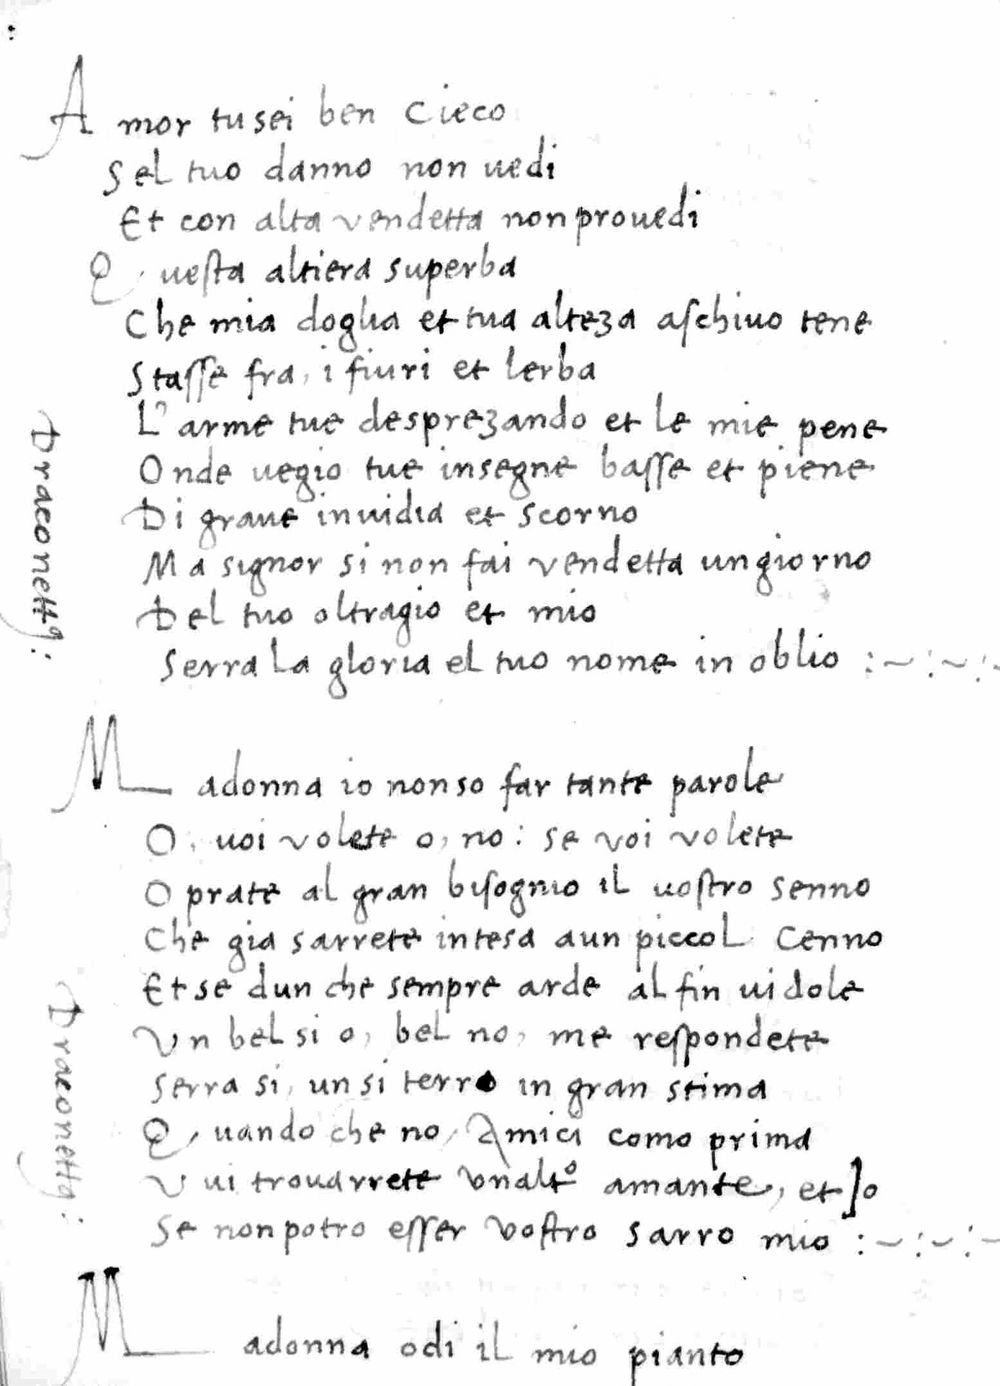 Amor tu sei ben Cieco
Sel tuo danno non uedi
Et con alta vendetta non prouedi
Questa altiera superba
Che mia doglia et tua alteza aschiuo tene
Stasse fra, i fiuri et lerba
L'arme tue desprezando et le mie pene
Onde uegio tue insegne basse et piene
Di graue inuidia et scorno
Ma signor si non fai vendetta un giorno
Del tuo oltragio et mio
Serra la gloria el tuo nome in oblio :~:~:
Draconetto:
Madonna io non so far tante parole
O, uoi volete o, no: se voi volete
Oprate al gran bisogno il uostro senno
Che gia sarrete intesa a un piccol Cenno
Et se dun che sempre arde al fin ui dole
Vn bel si o, bel no, me respondete
Serra si, un si terro in gran stima
Quando che no, Amici como prima
Vui trouarrete vnaltº amante, et Jo
Se non potro esser vostro sarro mio :~:~:
Draconetto:
Madonna odi il mio pianto